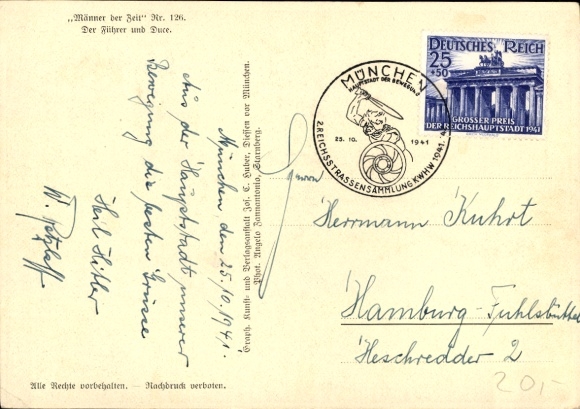 „Männer der Zeit“ Nr. 126.
Der Führer und Duce.
München, den 25.10.1941.
Aus der Hauptstadt unserer
Bewegung die besten Grüsse
Heil Hitler
W. Petzlaff
Graph. Kunst- und Verlagsanstalt Jos. C. Huber, Diessen vor München.
Phot. Angelo Jannantonio, Starnberg.
Alle Rechte vorbehalten. — Nachdruck verboten.
MÜNCHEN
HAUPTSTADT DER BEWEGUNG
25. 10. 1941
2. REICHSSTRASSENSAMMLUNG KWHW 1941
DEUTSCHES REICH
25
+50
GROSSER PREIS
DER REICHSHAUPTSTADT 1941
Herrn
Herrmann Kuhrt
Hamburg-Fuhlsbüttel
Heschredder 2
20,-